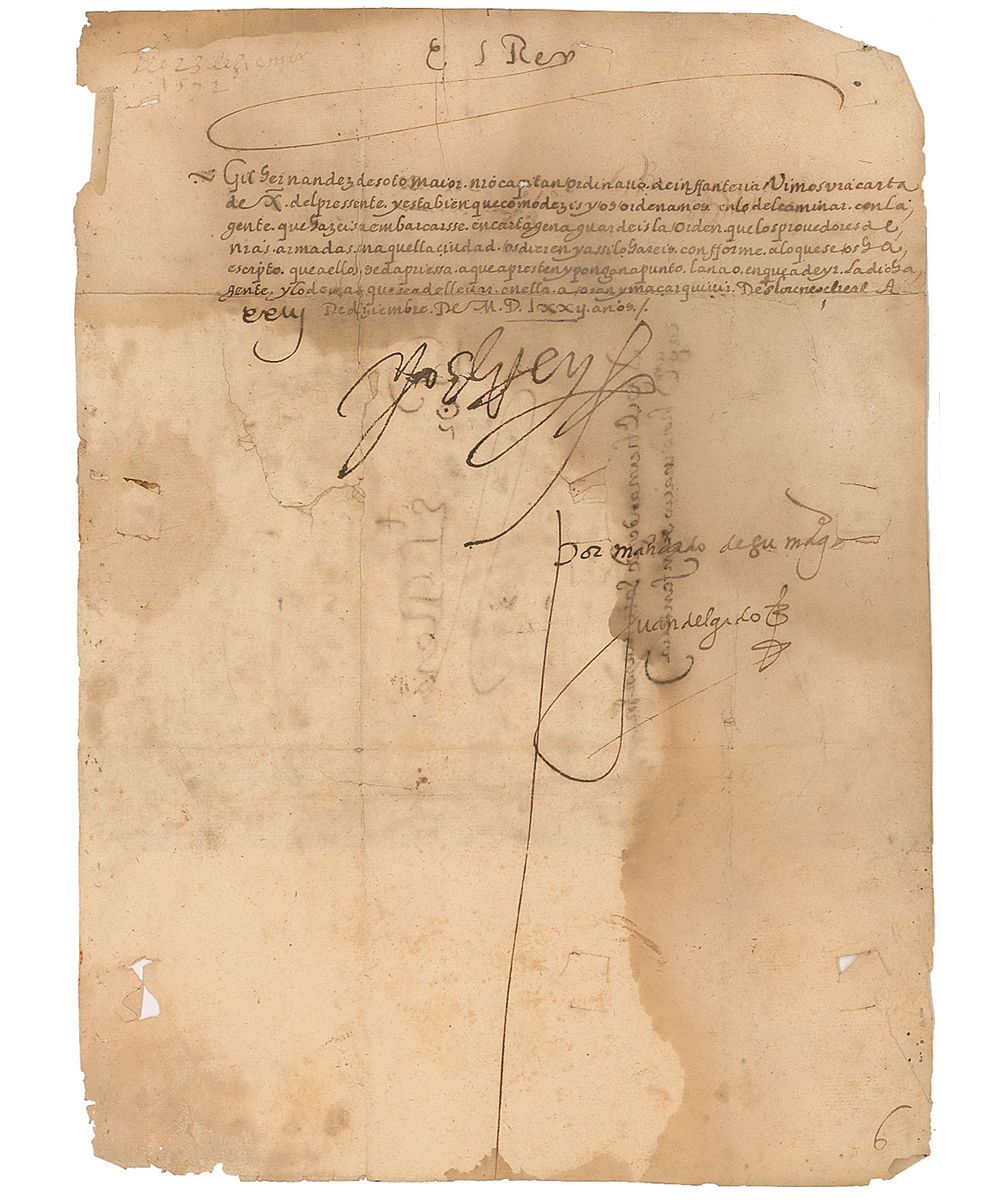 El Rey
Gil hernandez de soto maior. nro capitan ordinario. de inffanteria Vimos vra carta
de X. del pressente, y esta bien que como dezis y os ordenamos en lo del caminar. con la
gente. que hazeis a embarcarse. en cartagena guardeis la orden. que los proveedores de
nras. armadas en aquella ciudad. os dieren y assi lo hareis. confforme. a lo que se os ha
escripto. que a ellos se da priessa. a que apresten y pongan a punto. la nao. en que a de yr. la dicha
gente. y lo demas que sea de lleuar. en ella. a oran y maçarquiuir. De
xxiij De diziembre. DE M. D. lxxij. años /.
Yo el Rey
Por mandado de su magd
Juan delgado
6